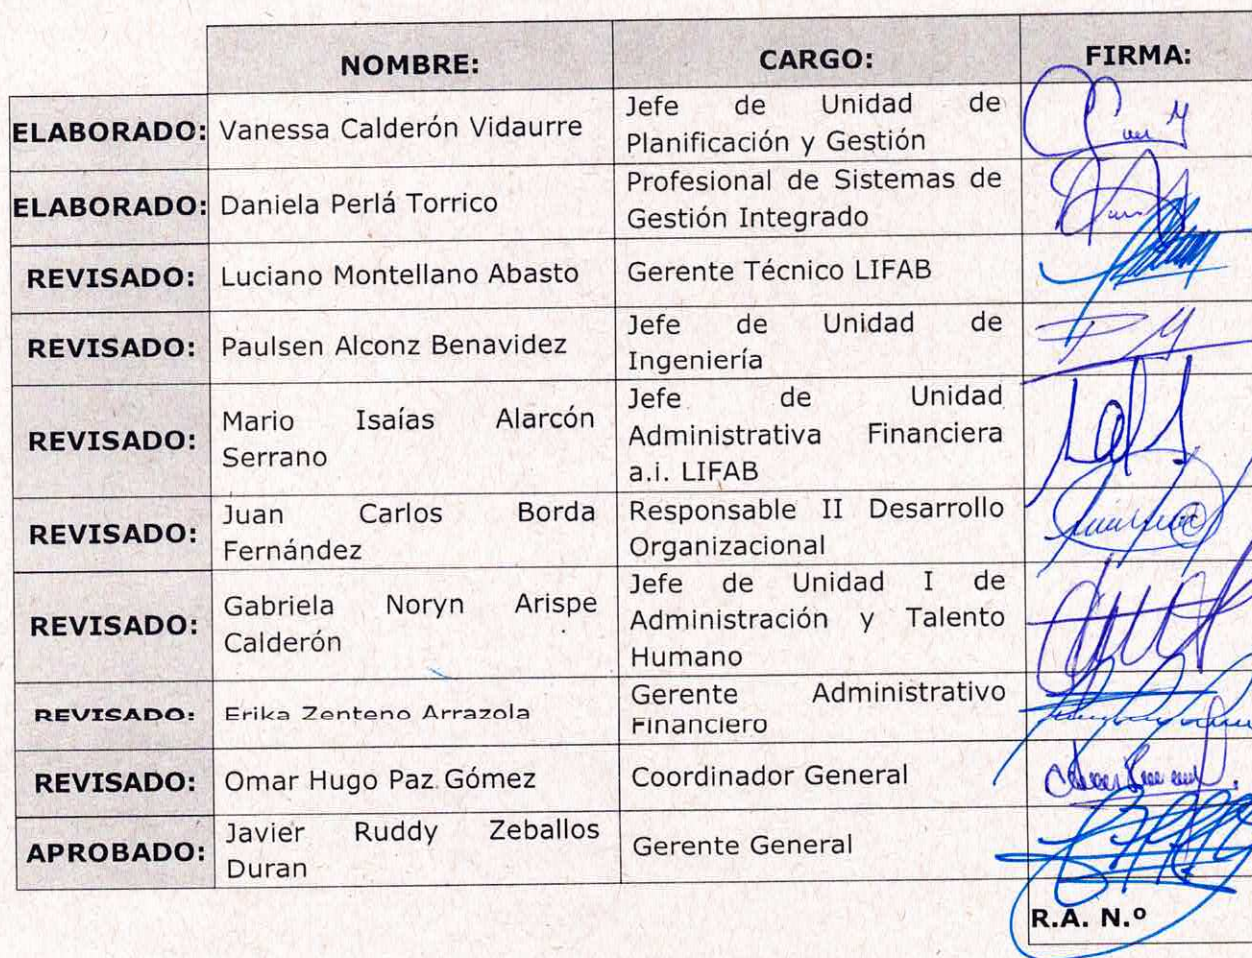 NOMBRE: CARGO: FIRMA:
ELABORADO: Vanessa Calderón Vidaurre Jefe de Unidad de
Planificación y Gestión
ELABORADO: Daniela Perlá Torrico Profesional de Sistemas de
Gestión Integrado
REVISADO: Luciano Montellano Abasto Gerente Técnico LIFAB
REVISADO: Paulsen Alconz Benavidez Jefe de Unidad de
Ingeniería
REVISADO: Mario Isaías Alarcón
Serrano
Jefe de Unidad
Administrativa Financiera
a.i. LIFAB
REVISADO: Juan Carlos Borda
Fernández
Responsable II Desarrollo
Organizacional
REVISADO: Gabriela Noryn Arispe
Calderón
Jefe de Unidad I de
Administración y Talento
Humano
REVISADO: Erika Zenteno Arrazola Gerente Administrativo
Financiero
REVISADO: Omar Hugo Paz Gómez Coordinador General
APROBADO: Javier Ruddy Zeballos
Duran
Gerente General
R.A. N.º